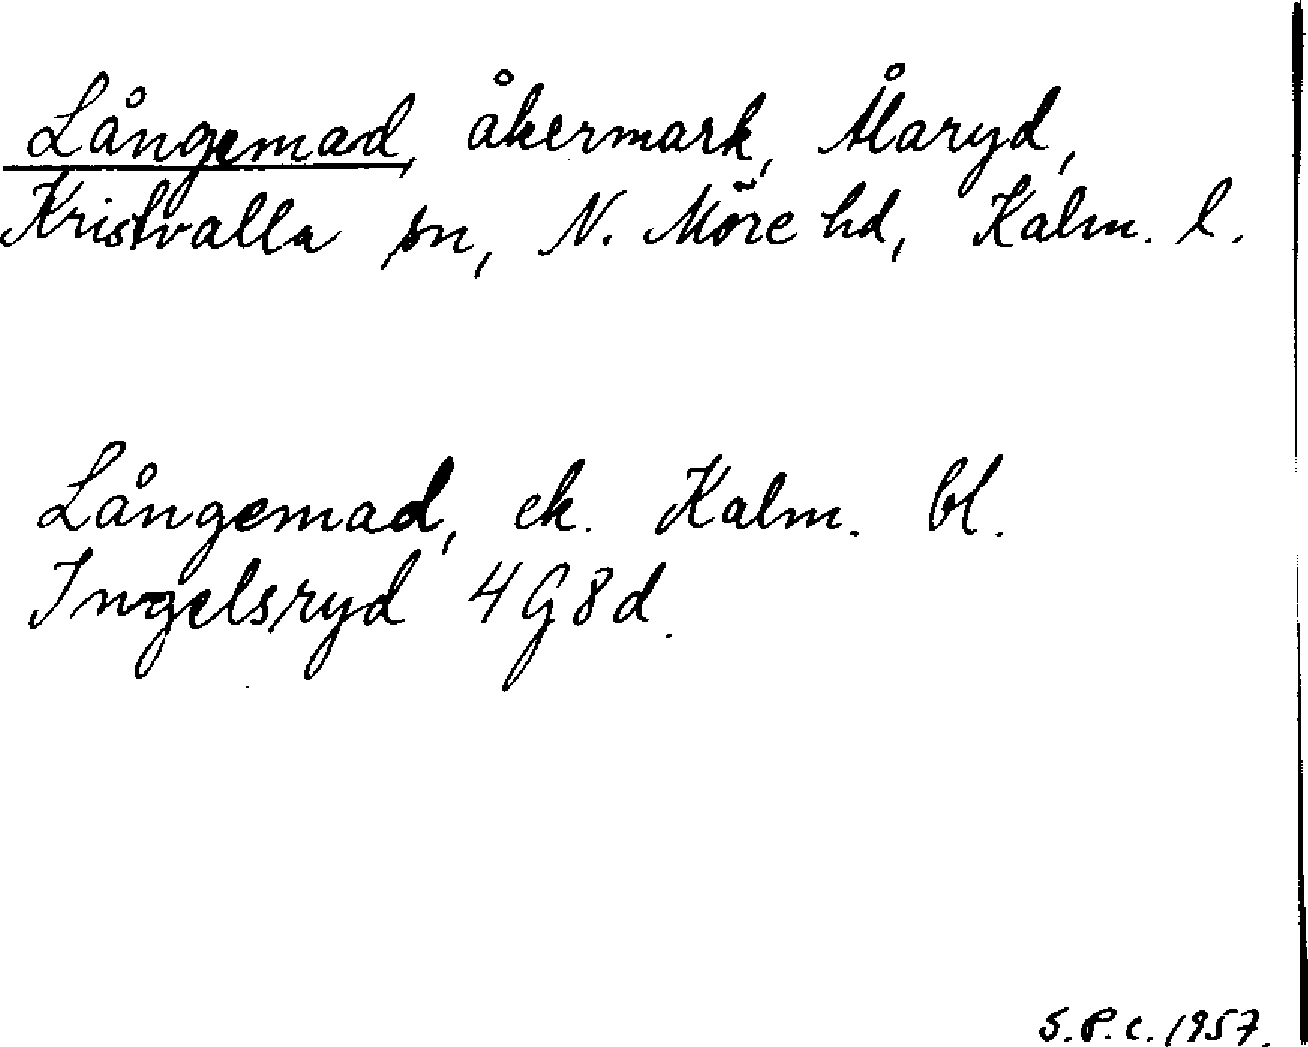 Långemad, åkermark, Ålaryd,
Kristvalla sn, N. Möre hd, Kalm. l.
Långemad, ek. Kalm. bl.
Ingelsryd 4G8d.
S.P.C. 1957.